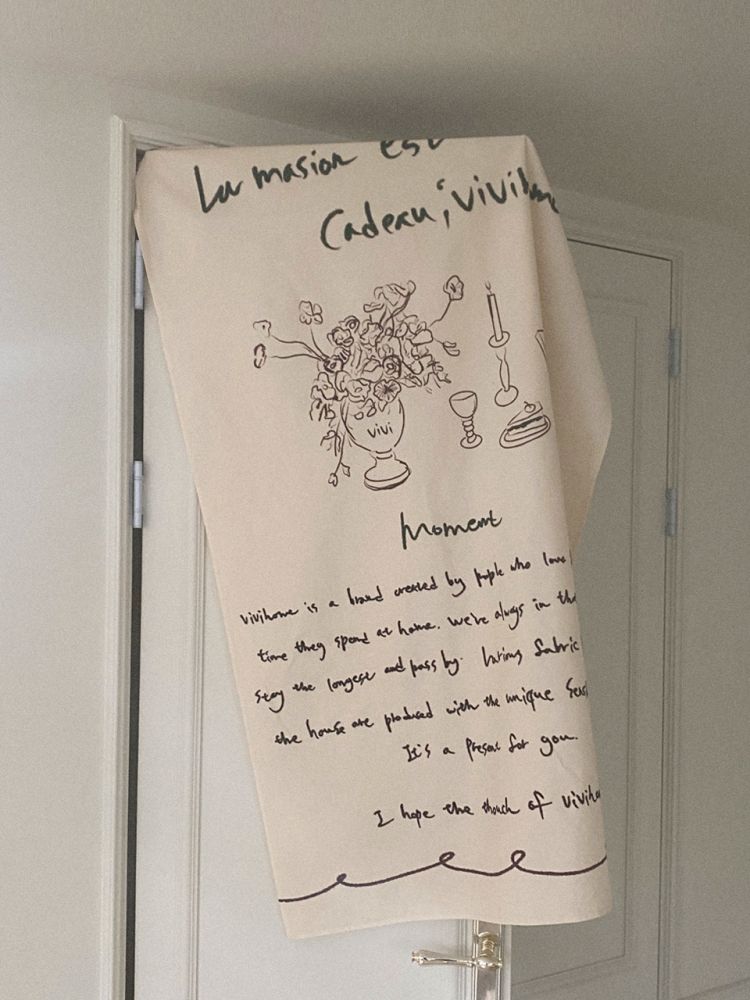 La masion est
Cadeau, "vivihome
vivi
Moment
vivihome is a brand created by people who love
time they spend at home. We're always in the
stay the longest and pass by. fabric
the house are produced with the unique
It's a Present for you.
I hope the of viviho